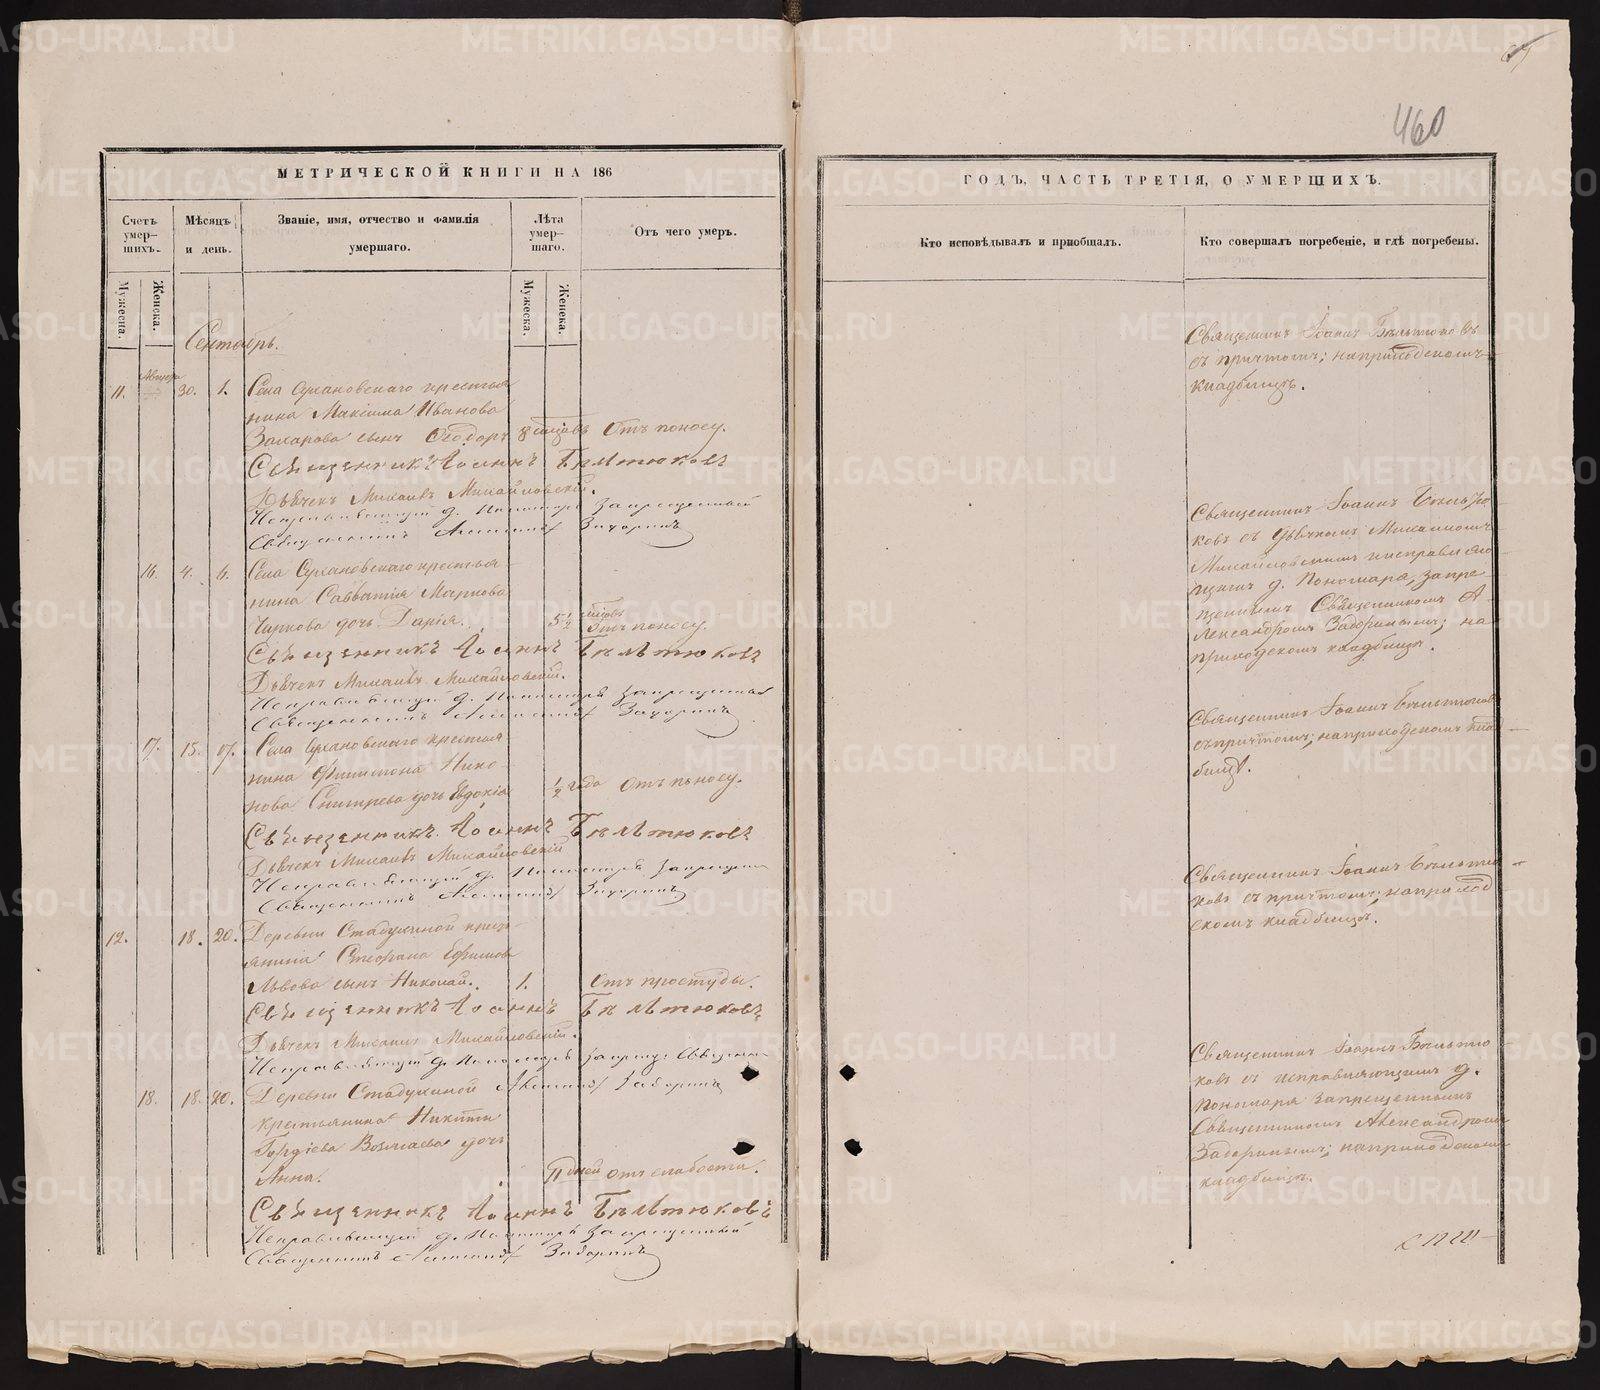 МЕТРИЧЕСКОЙ КНИГИ НА 186
Счетъ умер-шихъ.
Мѣсяцъ и день.
Званіе, имя, отчество и фамилія умершаго.
Лѣта умер-шаго.
Отъ чего умеръ.
Мужеска.
Женска.
Мужеска.
Женска.
Сентябрь.
11. 30. 1. Села Сухановскаго крестья
нина Максима Иванова
Захарова сынъ Ѳеодоръ. 8 Отъ поносу.
Священникъ Іоаннъ Бѣльтюковъ
Дьячекъ Михаилъ Михайловскій.
Исправляющій д. Пономаря Запрещенный
Священникъ Александръ Задоринъ
16. 4. 6. Села Сухановскаго крестья
нина Савватія Маркова
Чиркова дочь Дарія. 5½ Отъ поносу.
Священникъ Іоаннъ Бѣльтюковъ
Дьячекъ Михаилъ Михайловскій.
Исправляющій д. Пономаря Запрещенный
Священникъ Александръ Задоринъ
17. 15. 17. Села Сухановскаго крестья
нина Филимона Нико-
нова дочь Евдокія ½ года Отъ поносу.
Священникъ Іоаннъ Бѣльтюковъ
Дьячекъ Михаилъ Михайловскій
Исправляющій д. Пономаря Запрещен
Священникъ Александръ Задоринъ
12. 18. 20. Деревни Стадухиной крест-
янина Стефана Ефимова
Львова сынъ Николай. 1. Отъ простуды.
Священникъ Іоаннъ Бѣльтюковъ
Дьячекъ Михаилъ Михайловскій.
Исправляющій д. Пономаря запрещ. Священ
Александръ Задоринъ
18. 18. 20. Деревни Стадухиной
крестьянина Никиты
Гордіева дочь
Анна. 11 дней отъ слабости.
Священникъ Іоаннъ Бѣльтюковъ
Исправляющій д. Пономаря Запрещенный
Священникъ Александръ Задоринъ
460
ГОДЪ, ЧАСТЬ ТРЕТІЯ, О УМЕРШИХЪ.
Кто исповѣдывалъ и пріобщалъ.
Кто совершалъ погребеніе, и гдѣ погребены.
Священникъ Іоаннъ Бѣльтюковъ
съ причтомъ; на приходскомъ
кладбищѣ.
Священникъ Іоаннъ Бѣльтю
ковъ съ Дьячкомъ Михаиломъ
Михайловскимъ и исправляю
щимъ д. Пономаря, запре-
щеннымъ Священникомъ А-
лександромъ Задоринымъ; на
приходскомъ кладбищѣ.
Священникъ Іоаннъ Бѣльтюковъ
съ причтомъ; на приходскомъ клад
бищѣ.
Священникъ Іоаннъ Бѣльтю-
ковъ съ причтомъ; на приход
скомъ кладбищѣ.
Священникъ Іоаннъ Бѣльтю
ковъ съ исправляющимъ д.
Пономаря запрещеннымъ
Священникомъ Александромъ
Задоринымъ; на приходскомъ
кладбищѣ.
METRIKI.GASO-URAL.RU